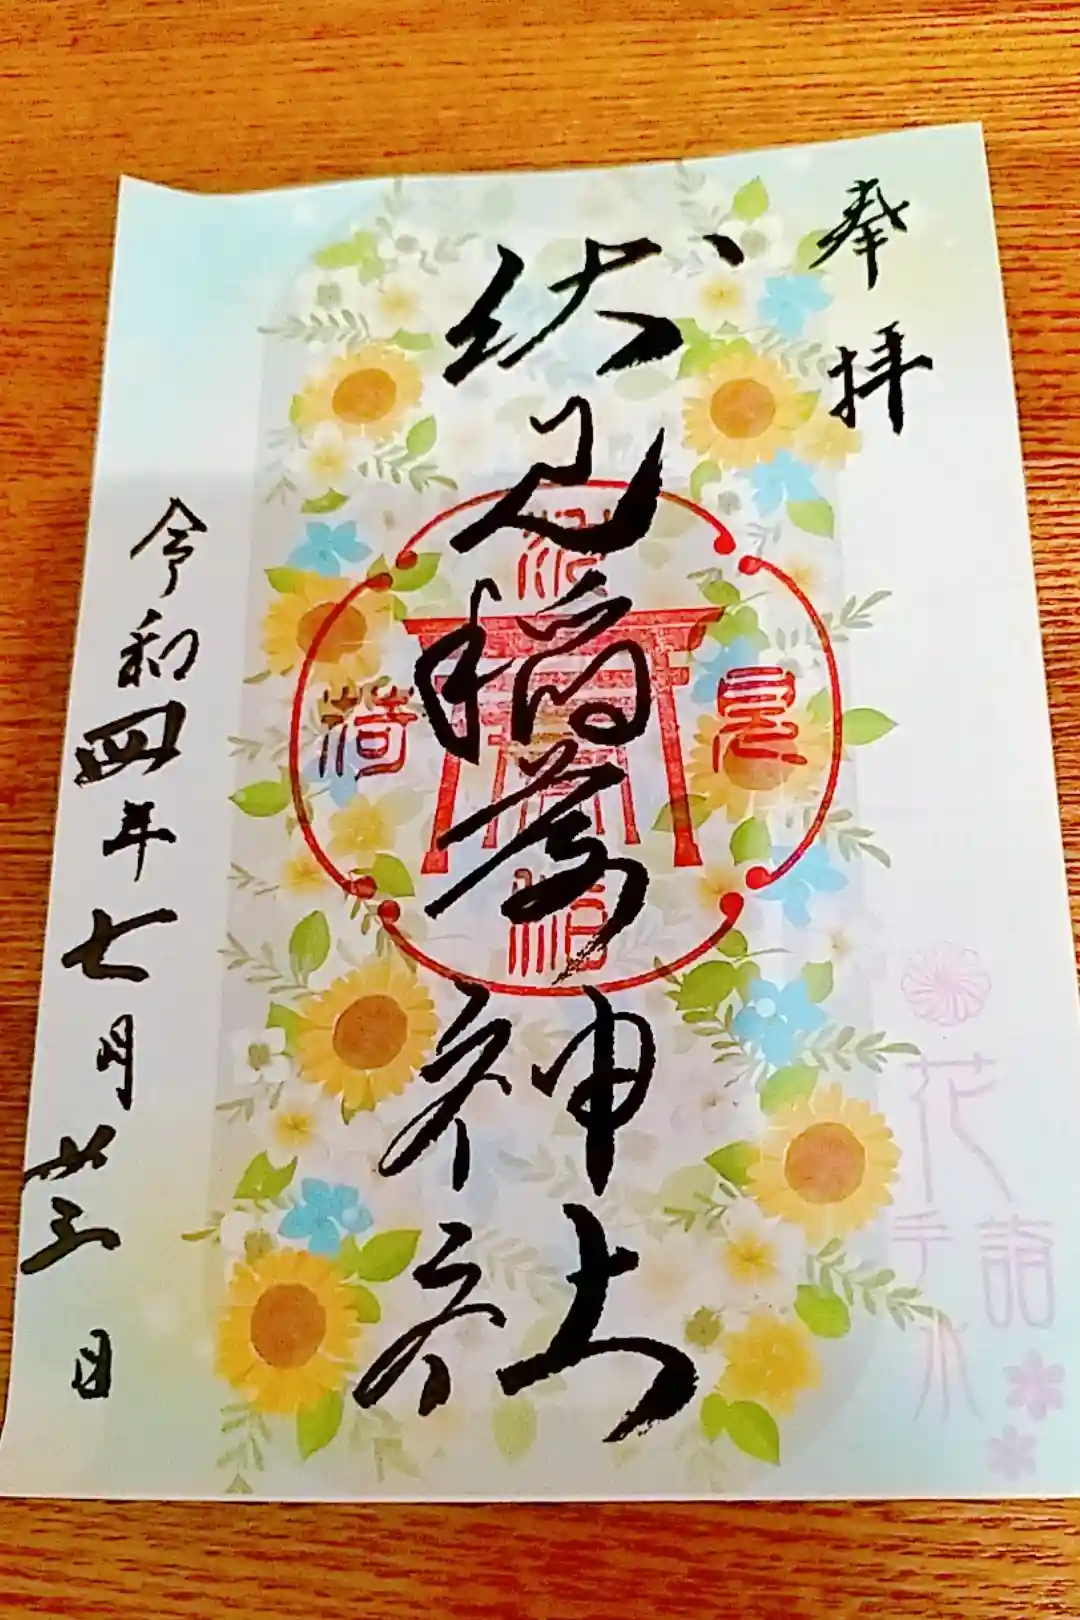 奉拝
伏見稲荷神社
伏
見
稲
荷
花詣
手水
令和四年七月廿三日